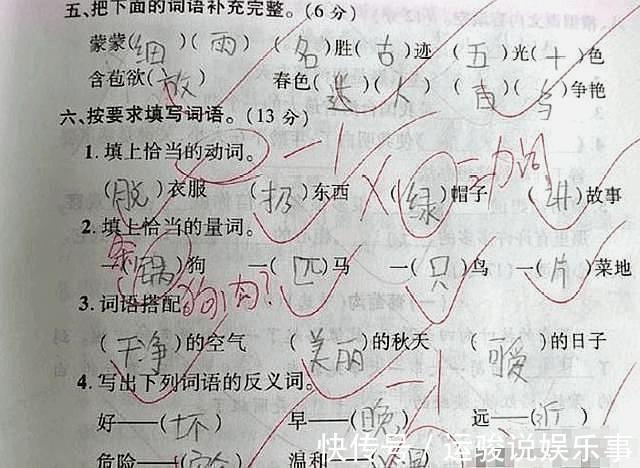 五、把下面的词语补充完整。(6分)
蒙蒙(细)(雨) (名)胜(古)迹 (五)光(十)色
含苞欲(放) 春色(迷)(人) (百)()争艳
六、按要求填写词语。(13分)
-1
1.填上恰当的动词。
动词
(脱)衣服 (扔)东西 (绿)帽子 (讲)故事
2.填上恰当的量词。
条
一(锅)狗 一(匹)马 一(只)鸟 一(片)菜地
狗肉?
3.词语搭配
(干净)的空气 (美丽)的秋天 (可爱)的日子
4.写出下列词语的反义词。
-1
好——(坏) 早——(晚) 远——(近)
危险——( 温和——(
快传号/运骏说娱乐事